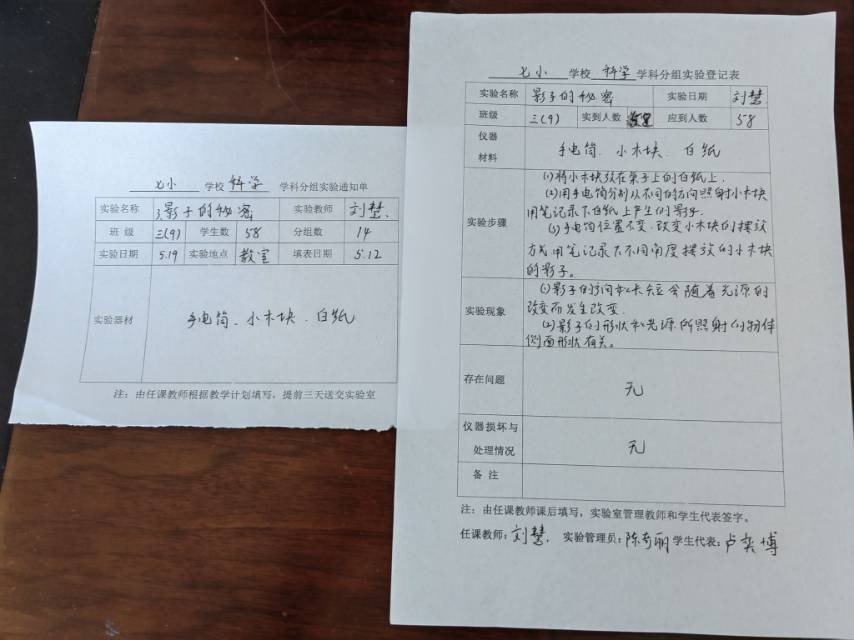 七小 学校 科学 学科分组实验通知单
实验名称 影子的秘密 实验教师 刘慧
班 级 三(9) 学生数 58 分组数 14
实验日期 5.19 实验地点 教室 填表日期 5.12
实验器材 手电筒、小木块、白纸
注：由任课教师根据教学计划填写，提前三天送交实验室
七小 学校 科学 学科分组实验登记表
实验名称 影子的秘密 实验日期 刘慧
班级 三(9) 实到人数 应到人数 58
仪器
材料 手电筒、小木块、白纸
实验步骤
(1)将小木块放在桌子上的白纸上.
(2)用手电筒分别从不同的方向照射小木块
用笔记录下白纸上产生的影子.
(3)手电筒位置不变.改变小木块的摆放
方式用笔记录下不同角度摆放的小木块
的影子。
实验现象
(1)影子的方向和长短会随着光源的
改变而发生改变.
(2)影子的形状和光源所照射的物体
侧面形状有关。
存在问题 无
仪器损坏与
处理情况 无
备 注
注：由任课教师课后填写，实验室管理教师和学生代表签字。
任课教师：刘慧. 实验管理员：陈奇丽 学生代表：卢奕博